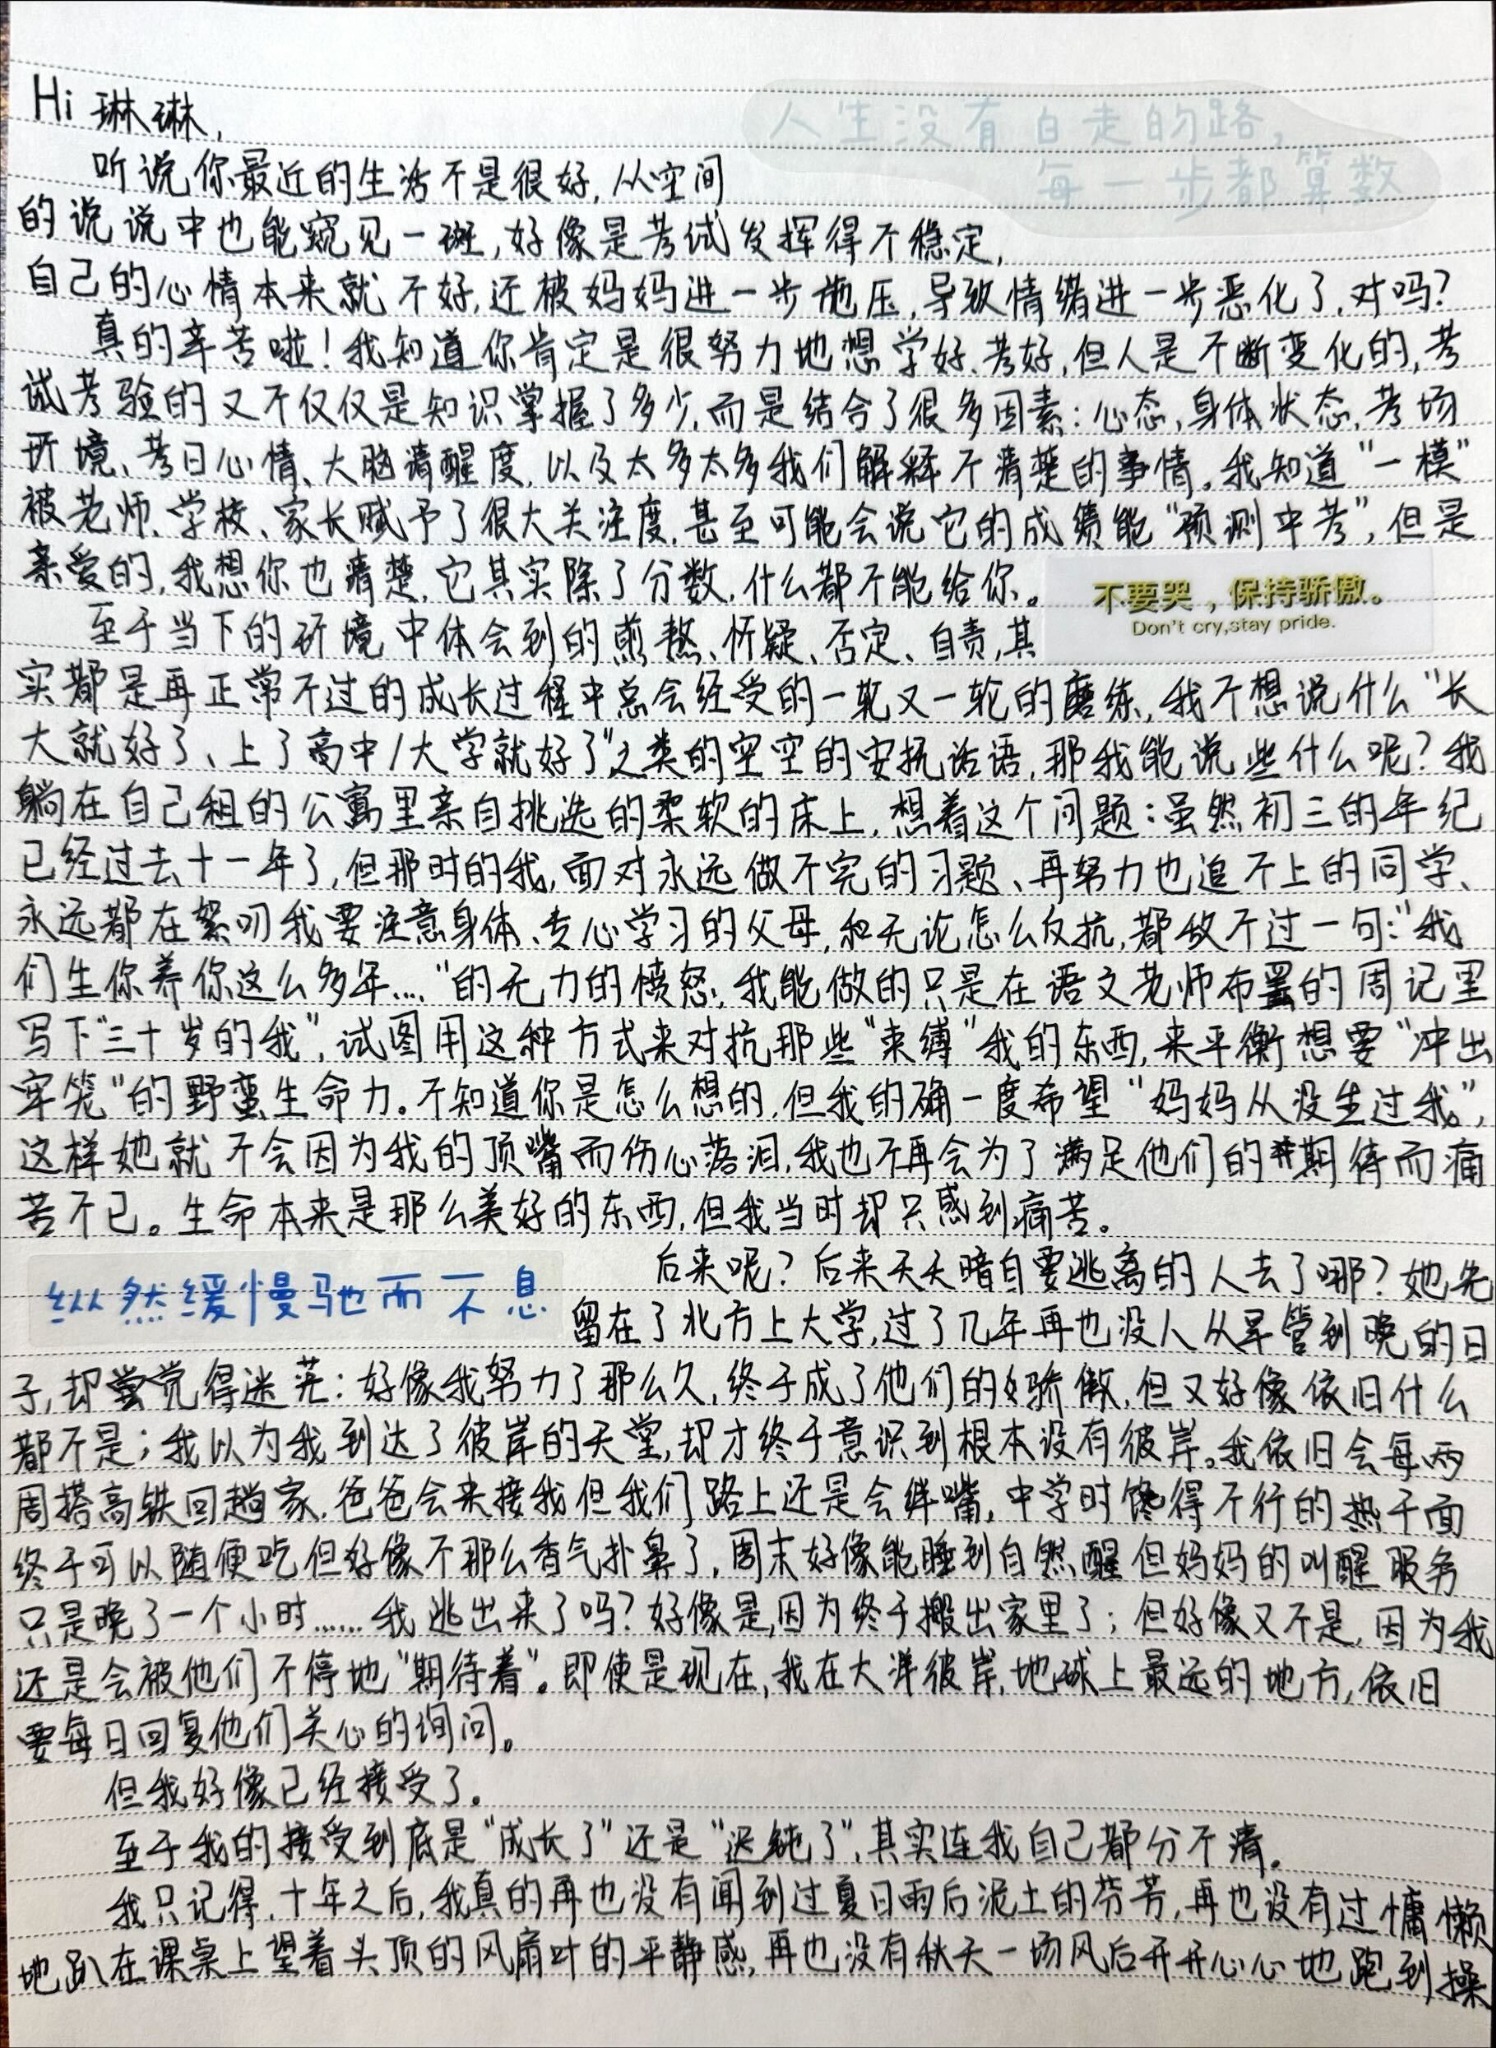 人生没有白走的路，
每一步都算数
Hi 琳琳，
听说你最近的生活不是很好，从空间
的说说中也能窥见一斑，好像是考试发挥得不稳定，
自己的心情本来就不好，还被妈妈进一步施压，导致情绪进一步恶化了，对吗？
真的辛苦啦！我知道你肯定是很努力地想学好、考好，但人是不断变化的，考
试考验的又不仅仅是知识掌握了多少，而是结合了很多因素：心态，身体状态，考场
环境、考日心情、大脑清醒度，以及太多太多我们解释不清楚的事情。我知道“一模”
被老师、学校、家长赋予了很大关注度，甚至可能会说它的成绩能“预测中考”，但是
亲爱的，我想你也清楚，它其实除了分数，什么都不能给你。
不要哭，保持骄傲。
Don't cry,stay pride.
至于当下的环境中体会到的煎熬、怀疑、否定、自责，其
实都是再正常不过的成长过程中总会经受的一轮又一轮的磨练，我不想说什么“长
大就好了、上了高中/大学就好了”之类的空空的安抚话语，那我能说些什么呢？我
躺在自己租的公寓里亲自挑选的柔软的床上，想着这个问题：虽然初三的年纪
已经过去十一年了，但那时的我，面对永远做不完的习题、再努力也追不上的同学、
永远都在絮叨我要注意身体、专心学习的父母，和无论怎么反抗，都敌不过一句：“我
们生你养你这么多年…”的无力的愤怒，我能做的只是在语文老师布置的周记里
写下“三十岁的我”，试图用这种方式来对抗那些“束缚”我的东西，来平衡想要“冲出
牢笼”的野蛮生命力。不知道你是怎么想的，但我的确一度希望“妈妈从没生过我。”，
这样她就不会因为我的顶嘴而伤心落泪，我也不再会为了满足他们的期待而痛
苦不已。生命本来是那么美好的东西，但我当时却只感到痛苦。
纵然缓慢驰而不息
后来呢？后来天天暗自要逃离的人去了哪？她先
留在了北方上大学，过了几年再也没人从早管到晚的日
子，却觉得迷茫：好像我努力了那么久，终于成了他们的骄傲，但又好像依旧什么
都不是；我以为我到达了彼岸的天堂，却才终于意识到根本没有彼岸。我依旧会每两
周搭高铁回趟家，爸爸会来接我但我们路上还是会绊嘴，中学时馋得不行的热干面
终于可以随便吃但好像不那么香气扑鼻了，周末好像能睡到自然醒但妈妈的叫醒服务
只是晚了一个小时……我逃出来了吗？好像是，因为终于搬出家里了；但好像又不是，因为我
还是会被他们不停地“期待着”。即使是现在，我在大洋彼岸，地球上最远的地方，依旧
要每日回复他们关心的询问。
但我好像已经接受了。
至于我的接受到底是“成长了”还是“迟钝了”，其实连我自己都分不清。
我只记得，十年之后，我真的再也没有闻到过夏日雨后泥土的芬芳，再也没有过慵懒
地趴在课桌上望着头顶的风扇叶的平静感，再也没有秋天一场风后开开心心地跑到操